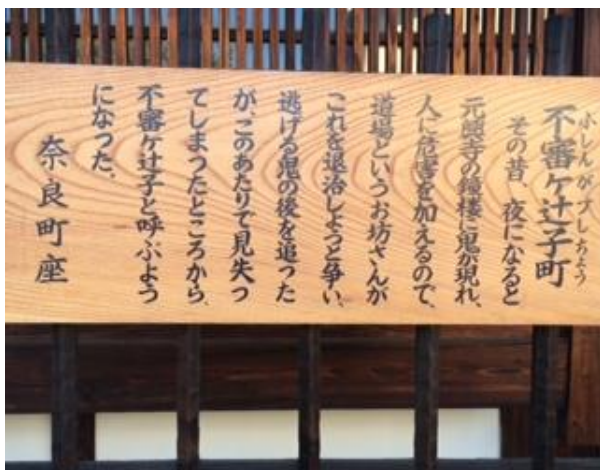 ふしんがづしちょう
不審ケ辻子町
その昔、夜になると
元興寺の鐘楼に鬼が現れ、
人に危害を加えるので、
道場というお坊さんが
これを退治しようと争い、
逃げる鬼の後を追った
が、このあたりで見失っ
てしまったところから、
不審ケ辻子と呼ぶよう
になった。
奈良町座